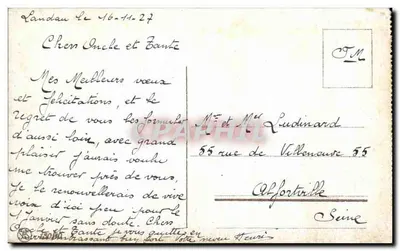 Landau le 16-11-27
Chers Oncle et Tante
Mes Meilleurs vœux
et félicitations, et le
regret de vous les formuler
d'aussi loin, avec grand
plaisir j'aurais voulu
me trouver près de vous,
Je le renouvellerais de vive
voix d'ici peu pour le
1er janvier sans doute. Chers
Oncle et Tante je vous quitte en
Votre neveu Henri
F.M
Mr et Mme Ludinard
55 rue de Villeneuve 55
Alfortville
Seine